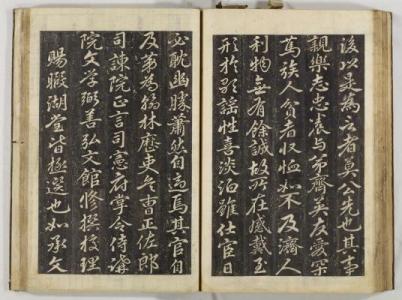 後以是為言者莫公先也其事
親樂志忠養与弟齊英友愛深
篤族人貧者収恤如不及濟人
利物無有餘誠故所在感戴至
形於歌謡性喜淡泊雖仕宦日
必耽幽勝蕭然自適焉其官自
及第為翰林歷吏兵曹正佐郎
司諫院正言司憲府掌令侍講
院文学弼善弘文館修撰校理
賜暇湖堂皆極選也如承文